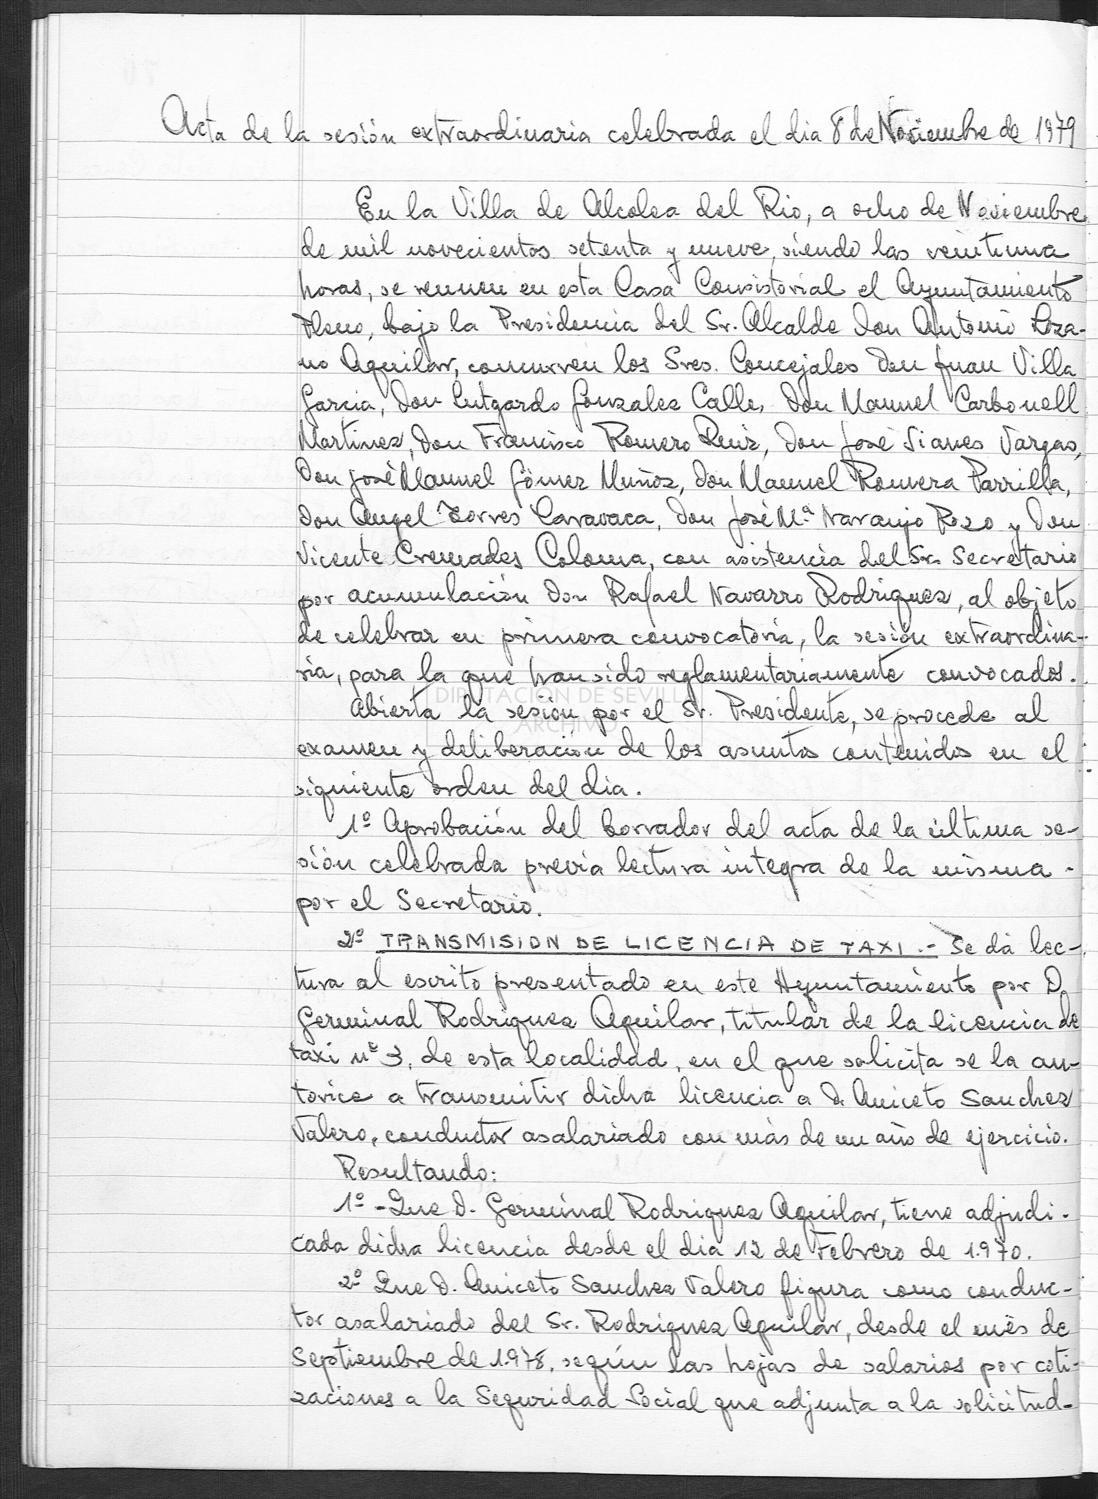 Acta de la sesión extraordinaria celebrada el dia 8 de Noviembre de 1979
En la Villa de Alcolea del Rio, a ocho de Noviembre
de mil novecientos setenta y nueve, siendo las veintiuna
horas, se reunen en esta Casa Consistorial el Ayuntamiento
Pleno, bajo la Presidencia del Sr. Alcalde Don Antonio Loza-
no Aguilar, concurren los Sres. Concejales Don Juan Villa
Garcia, Don Lutgardo Gonzalez Calle, Don Manuel Carbonell
Martinez, Don Francisco Romero Ruiz, Don José Sianes Vargas,
Don José Manuel Gómez Muñoz, Don Manuel Romera Parrilla,
Don Angel Torres Caravaca, Don José Mª Naranjo Rozo y Don
Vicente Cremades Coloma, con asistencia del Sr. Secretario
por acumulación Don Rafael Navarro Rodriguez, al objeto
de celebrar en primera convocatoria, la sesión extraordina-
ria, para la que han sido reglamentariamente convocados.
DIPUTACION DE SEVILLA
ARCHIVO
Abierta la sesión por el Sr. Presidente, se procede al
examen y deliberacion de los asuntos contenidos en el
siguiente orden del dia.
1º Aprobación del borrador del acta de la última se-
sión celebrada previa lectura integra de la misma -
por el Secretario.
2º TRANSMISION DE LICENCIA DE TAXI.- Se dá lec-
tura al escrito presentado en este Ayuntamiento por D.
Germinal Rodriguez Aguilar, titular de la licencia de
taxi nº 3, de esta localidad, en el que solicita se la au-
torice a transmitir dicha licencia a D. Aniceto Sanchez
Valero, conductor asalariado con más de un año de ejercicio.
Resultando:
1º - Que D. Germinal Rodriguez Aguilar, tiene adjudi-
cada dicha licencia desde el dia 12 de Febrero de 1.970.
2º Que D. Aniceto Sanchez Valero figura como conduc-
tor asalariado del Sr. Rodriguez Aguilar, desde el mes de
Septiembre de 1.978, según las hojas de salarios por coti-
zaciones a la Seguridad Social que adjunta a la solicitud-